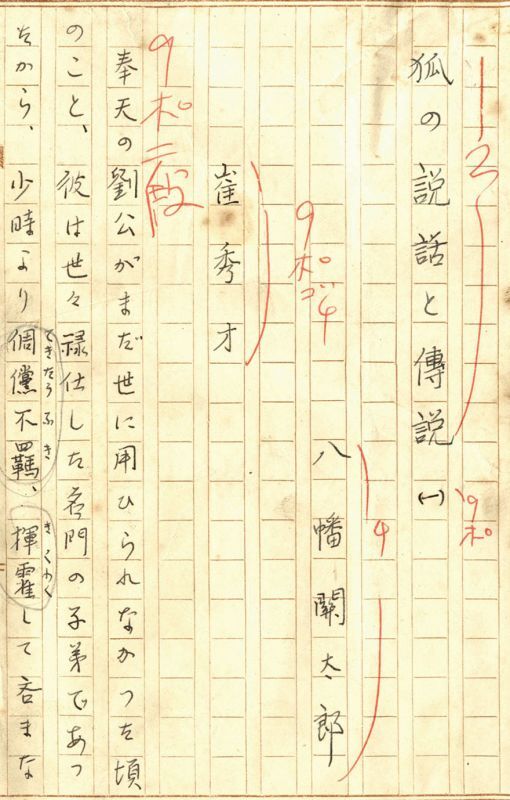 狐の説話と傳説(一)
八幡關太郎
崔秀才
奉天の劉公がまだ世に用ひられなかつた頃
のこと、彼は世々禄仕した名門の子弟であつ
たから、少時より倜儻不羈、揮霍して吝まな
てきたうふき
きくわく
9ポ
9ポゴ4
4
9ポ二段